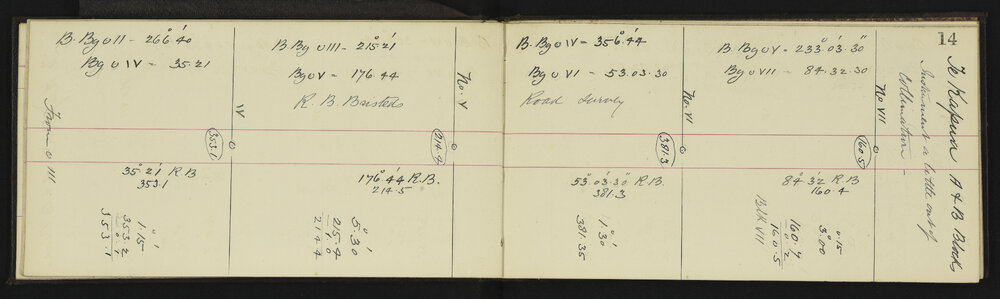 B. Bg ⊙ III - 266°.40'
Bg ⊙ IV - 35.21
From ⊙ III
IV
353.1
35°.21' R B
353.1
1°.15'
353.2
0.1
353.1
B. Bg ⊙ III - 215°.21'
Bg ⊙ V - 176.44
R. B. Bristeds
No. V
214.4
176°.44' R.B.
214.5
5°.30'
215.4
1.0
214.4
B. Bg ⊙ IV - 356°.44'
Bg ⊙ VI - 53.03.30
Road Survey
No. VI
381.3
53°.03'.30" R B.
381.3
1°.30'
381.35
14
B Bg ⊙ V - 233°.03'.30"
Bg ⊙ VII - 84.32.30
No VII
160.5
84°.32' R B
160.4
Blk VII
0.15
3°.00
160.7
0.2
160.5
Te Kapua A & B Block
Instrument a little out of
Collimation -